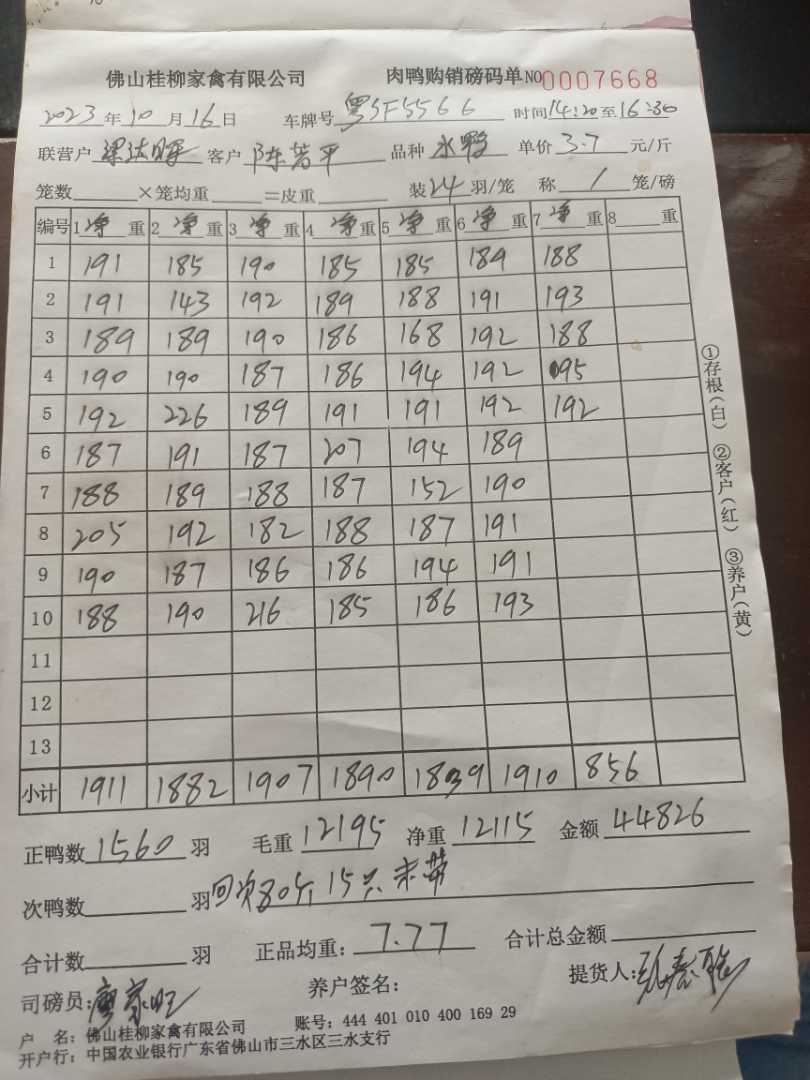 佛山桂柳家禽有限公司 肉鸭购销磅码单 NO 0007668
2023年10月16日 车牌号 粤SF5566 时间14:20至16:30
联营户 客户 陈芳平 品种 水鸭 单价 3.7 元/斤
笼数 ×笼均重 =皮重 装24羽/笼 称 1 笼/磅
编号 1净重 2净重 3净重 4净重 5净重 6净重 7净重 8 重
1 191 185 190 185 185 189 188
2 191 143 192 189 188 191 193
3 189 189 190 186 168 192 188
4 190 190 187 186 194 192 095
5 192 226 189 191 191 192 192
6 187 191 187 207 194 189
7 188 189 188 187 152 190
8 205 192 182 188 187 191
9 190 187 186 186 194 191
10 188 190 216 185 186 193
11
12
13
小计 1911 1882 1907 1890 1839 1910 856
正鸭数 1560 羽 毛重 12195 净重 12115 金额 44826
次鸭数 羽 回次80斤 15只未带
合计数 羽 正品均重: 7.77 合计总金额
司磅员: 廖家旺 养户签名: 提货人:
户 名: 佛山桂柳家禽有限公司 账号: 444 401 010 400 169 29
开户行: 中国农业银行广东省佛山市三水区三水支行
①存根(白) ②客户(红) ③养户(黄)